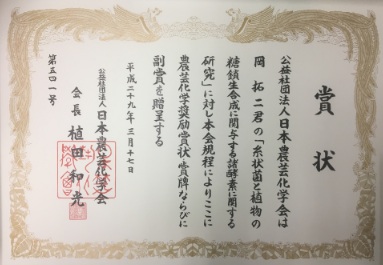 賞状
公益社団法人日本農芸化学会は
岡 拓二君の「糸状菌と植物の
糖鎖生合成に関与する諸酵素に関する
研究」に対し本会規程によりここに
農芸化学奨励賞状賞牌ならびに
副賞を贈呈する
平成二十九年三月十七日
公益社団法人日本農芸化学会
会長 植田和光
第五四一号